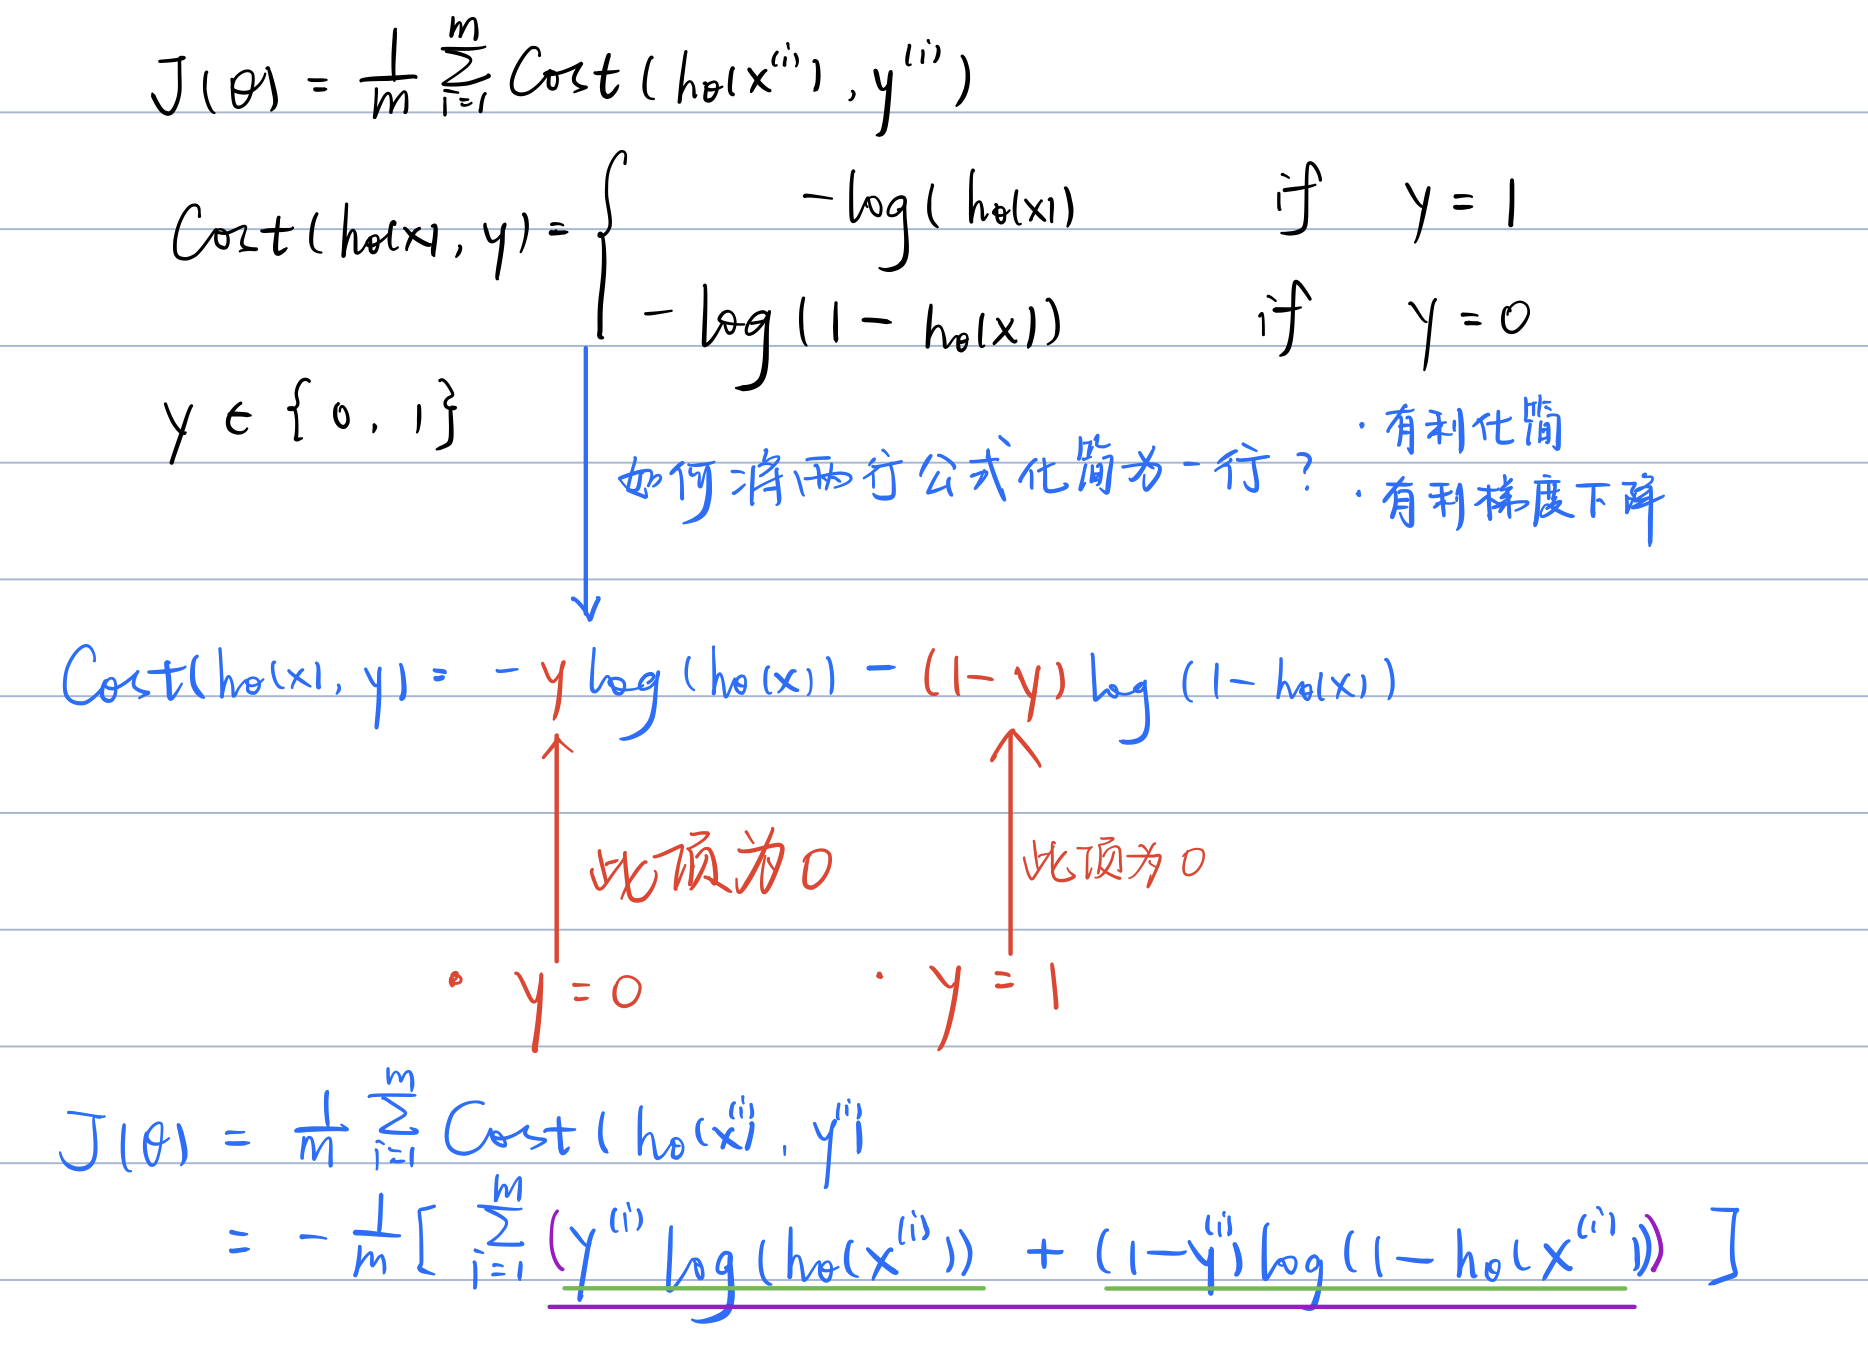 J(θ) = 1/m Σ_{i=1}^{m} Cost(hθ(x^(i)), y^(i))
Cost(hθ(x), y) = { -log(hθ(x)) if y = 1
- log(1 - hθ(x)) if y = 0
y ∈ {0, 1}
如何将两行公式化简为一行?
· 有利化简
· 有利梯度下降
Cost(hθ(x), y) = - y log(hθ(x)) - (1 - y) log(1 - hθ(x))
此项为0 此项为0
· y = 0 · y = 1
J(θ) = 1/m Σ_{i=1}^{m} Cost(hθ(x^(i)), y^(i))
= - 1/m [ Σ_{i=1}^{m} (y^(i) log(hθ(x^(i))) + (1 - y^(i)) log(1 - hθ(x^(i)))) ]